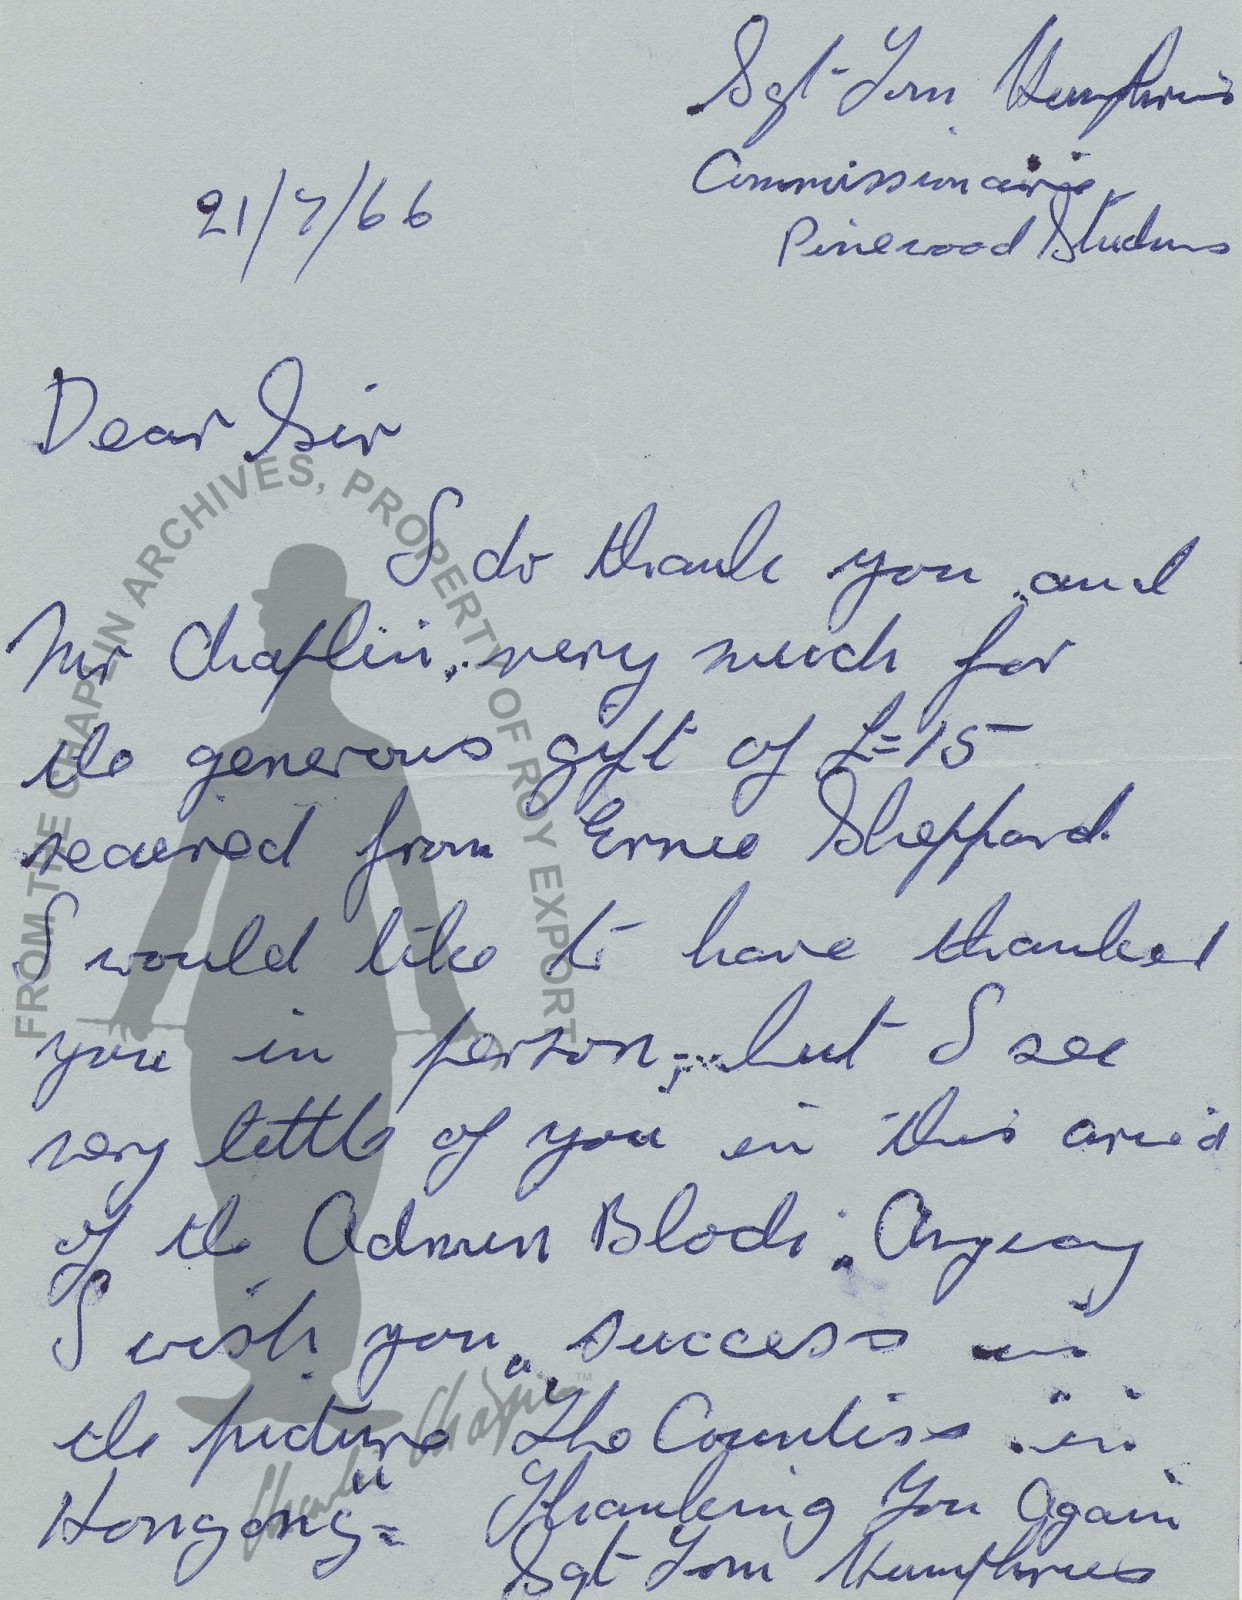 Sgt Tom Humphries
Commissionaire,
Pinewood Studios
21/7/66
Dear Sir
I do thank you and
Mr Chaplin, very much for
the generous gift of £=15
received from Ernie Sheppard.
I would like to have thanked
you in person, but I see
very little of you in this
of the Admin Block. Anyway
I wish you, success in
the picture "The Countiss in
Hongong"= Thanking You Again
Sgt Tom Humphries
FROM THE CHAPLIN ARCHIVES, PROPERTY OF ROY EXPORT
Charlie Chaplin ™